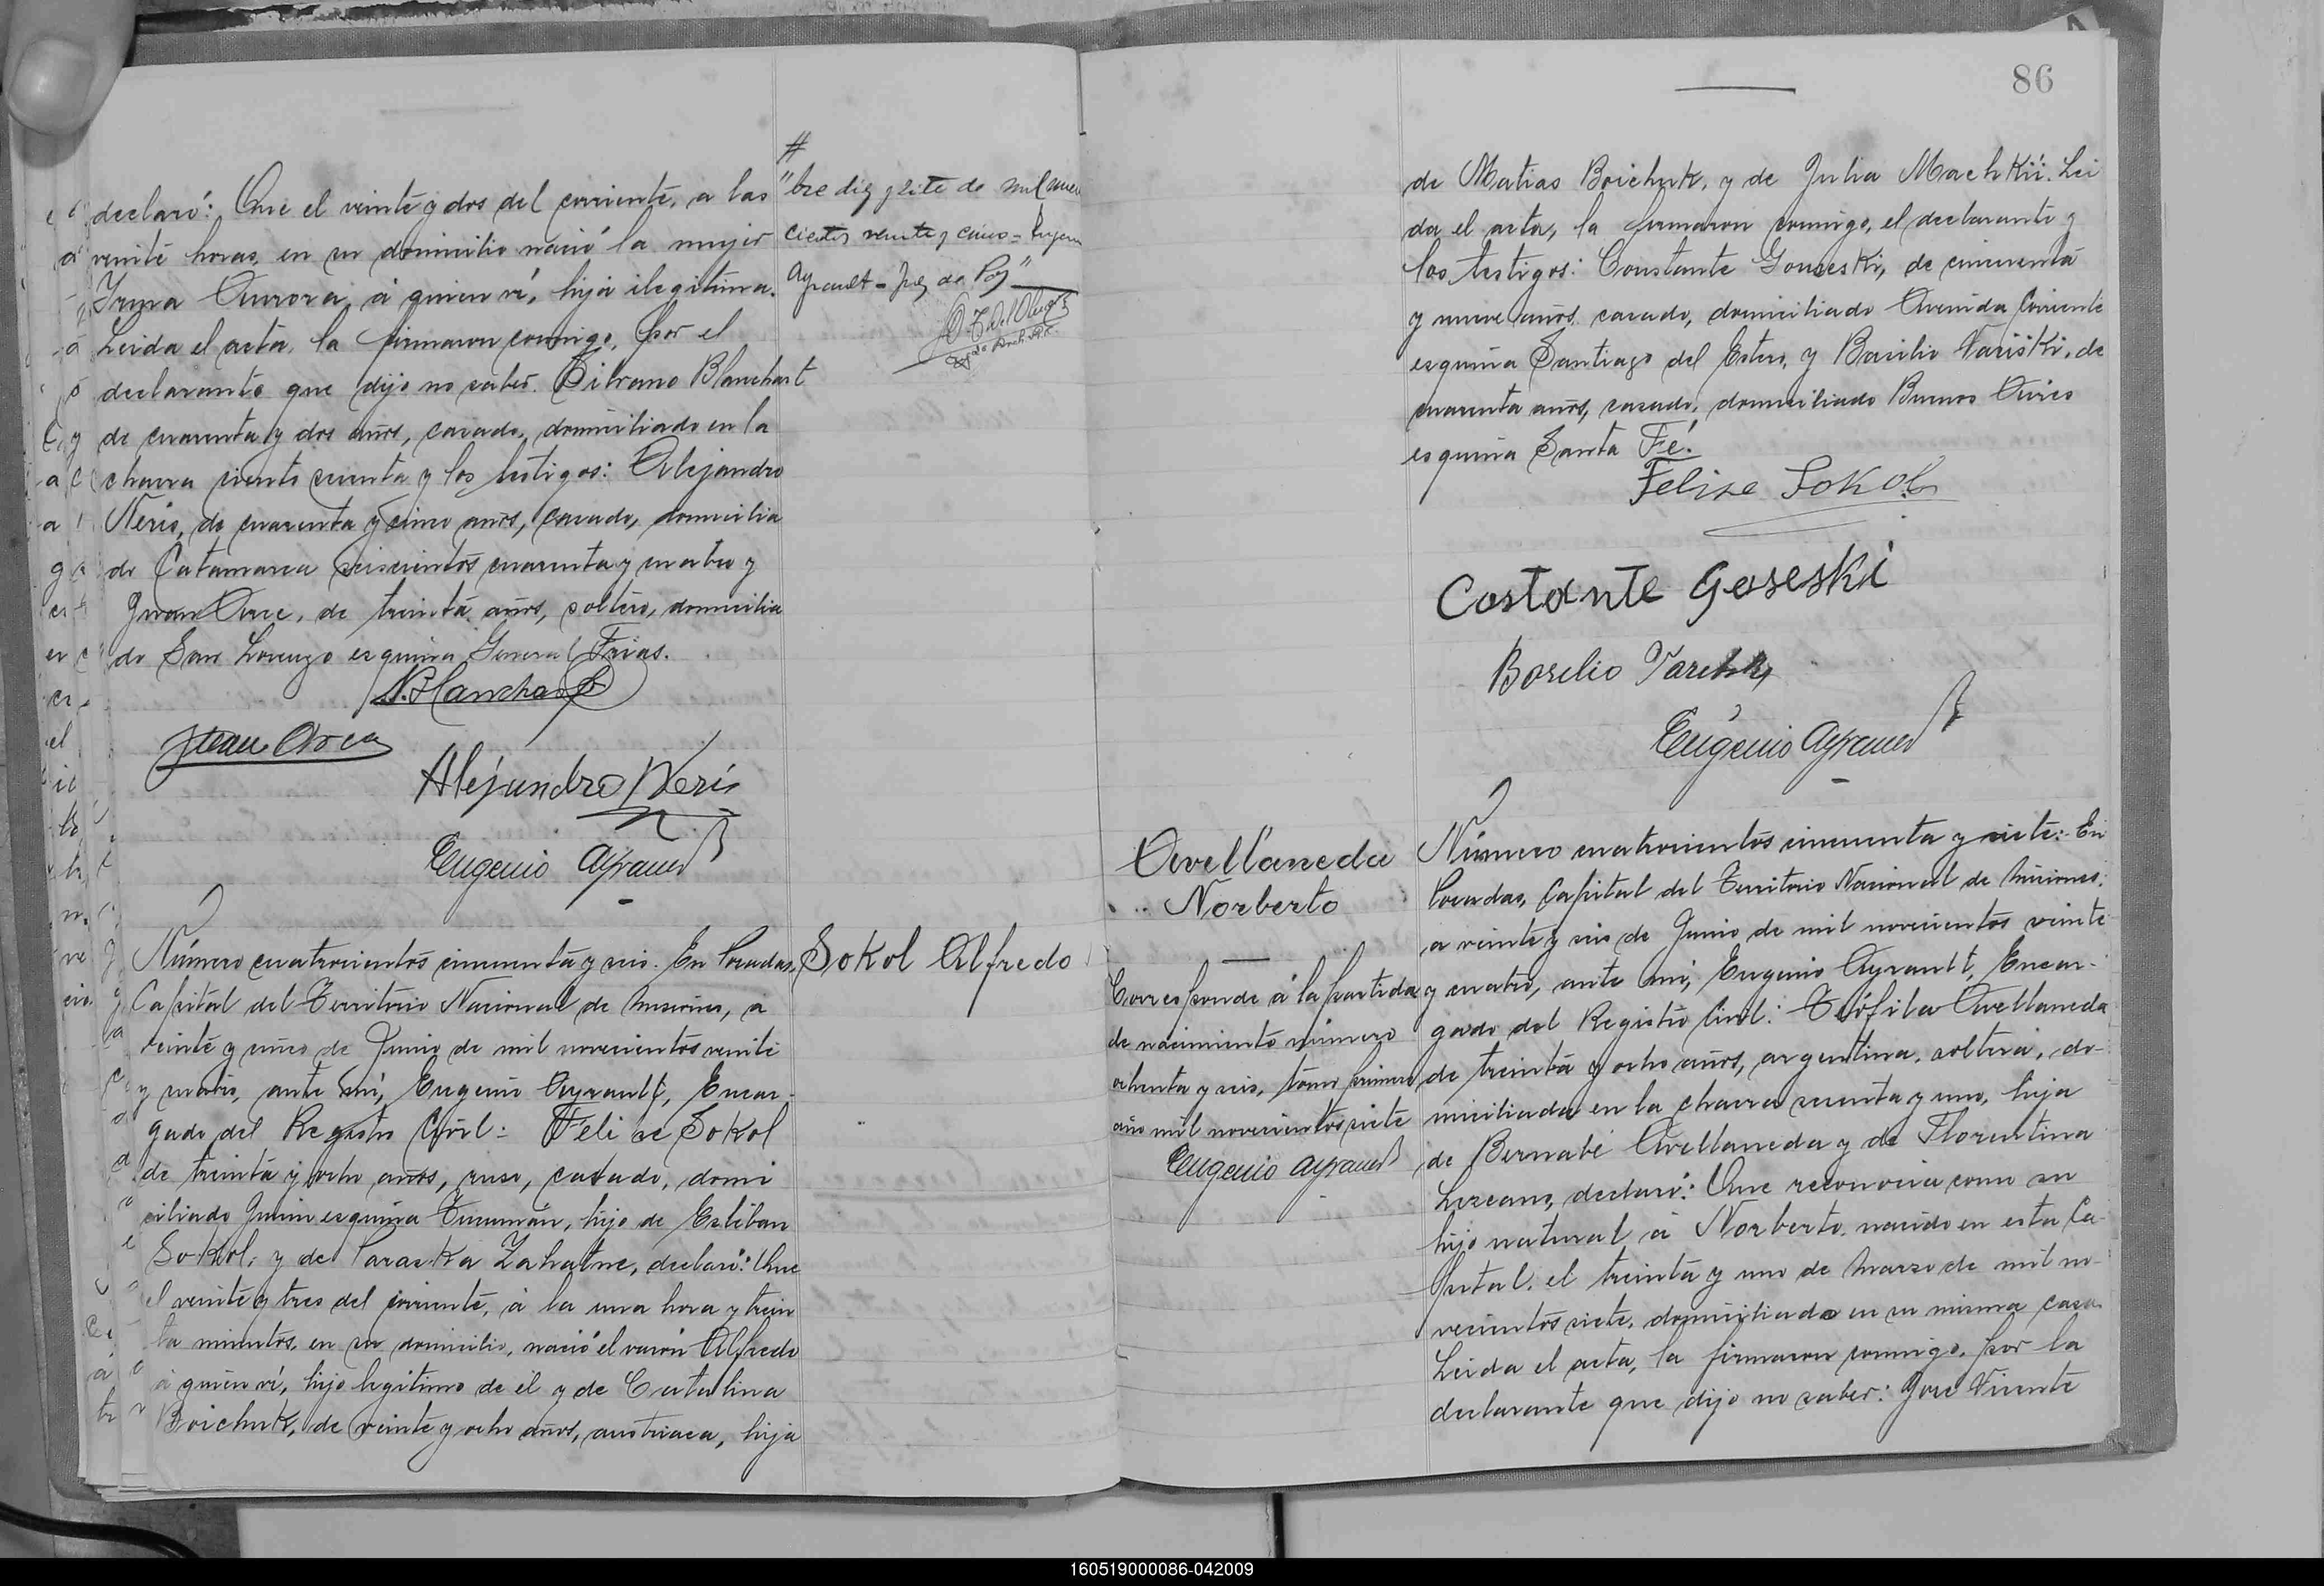 declaró: Que el veinte y dos del corriente, a las
veinte horas, en su domicilio nació la mujer
Irma Aurora, á quien ví, hija ilegítima.
Leida el acta, la firmaron conmigo, por el
declarante que dijo no saber. Blanchart
de cuarenta y dos años, casado, domiciliado en la
chacra ciento y los testigos: Alejandro
Neris, de cuarenta y cinco años, casado, domicilia
do Catamarca seiscientos cuarenta y cuatro y
Juan Arce, de treinta años, soltero, domicilia
do San Lorenzo esquina General Frias.
Juan Arce
Alejandro Neris
Eugenio Ayrault
#
"bre diez y siete de mil nove
cientos veinte y cinco = Eugenio
Ayrault - Juez de Paz"
Número cuatrocientos cincuenta y seis. En Posadas,
Capital del Territorio Nacional de Misiones, á
veinte y cinco de Junio de mil novecientos veinte
y cuatro, ante mí, Eugenio Ayrault, Encar-
gado del Registro Civil: Felise Sokol
de treinta y ocho años, ruso, casado, domi
ciliado Junin esquina Tucumán, hijo de Esteban
Sokol, y de Paraska Zahatne, declaró: Que
el veinte y tres del corriente, á la una hora y trein
ta minutos, en su domicilio, nació el varón Alfredo
á quien ví, hijo legítimo de él y de Catalina
Boichuk, de veinte y ocho años, austriaca, hija
Sokol Alfredo
86
de Matias Boichuk, y de Julia Machkii. Lei
da el acta, la firmaron conmigo, el declarante y
los testigos: Constante Gouseski, de cincuenta
y nueve años, casado, domiciliado Avenida Corriente
esquina Santiago del Estero, y Basilio Tariski, de
cuarenta años, casado, domiciliado Buenos Aires
esquina Santa Fé.
Felise Sokol
Costante Goseski
Eugenio Ayrault
Avellaneda
Norberto
Corresponde á la partida
de nacimiento número
ochenta y seis, tomo primero
año mil novecientos siete
Eugenio Ayrault
Número cuatrocientos cincuenta y siete: En
Posadas, Capital del Territorio Nacional de Misiones,
a veinte y seis de Junio de mil novecientos veinte
y cuatro, ante mí, Eugenio Ayrault, Encar-
gado del Registro Civil: Teófila Avellaneda
de treinta y ocho años, argentina, soltera, do-
miciliada en la chacra sesenta y uno, hija
de Bernabé Avellaneda y de Florentina
Lezcano, declaró: Que reconocia como su
hijo natural á Norberto, nacido en esta Ca-
pital, el treinta y uno de Marzo de mil no-
vecientos siete, domiciliado en su misma casa.
Leida el acta, la firmaron conmigo, por la
declarante que dijo no saber: José Vicente
160519000086-042009